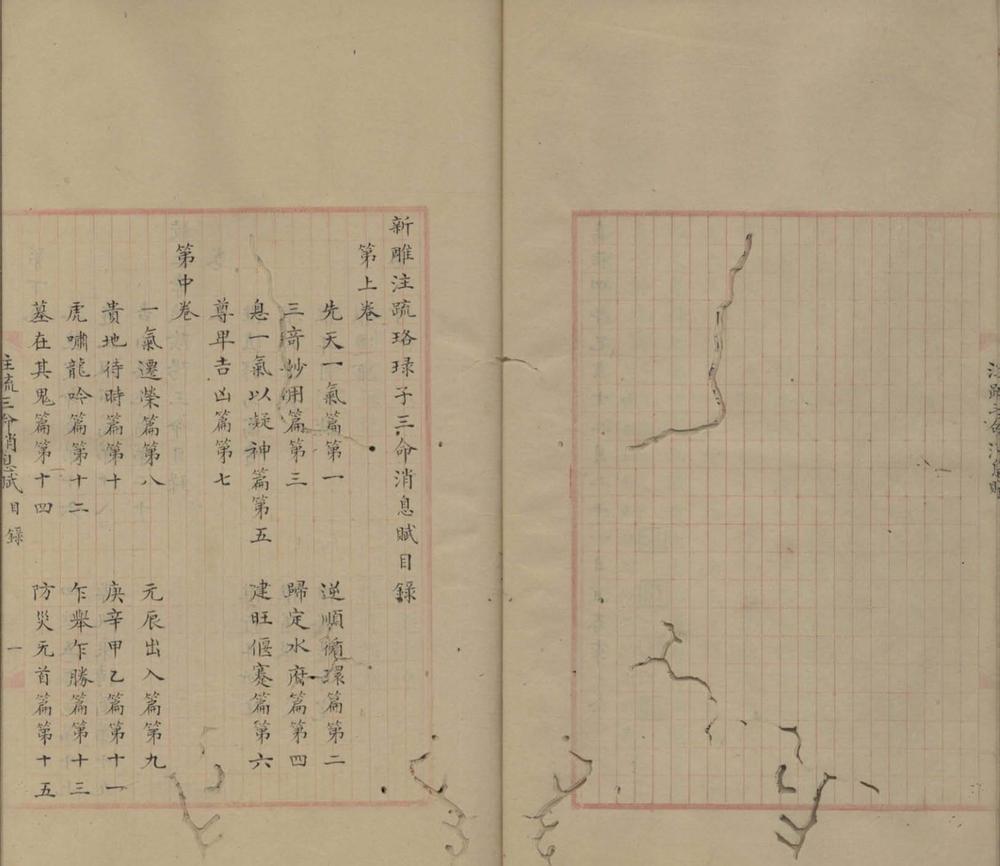 新雕注疏珞琭子三命消息賦目錄
第上卷
先天一氣篇第一 逆順循環篇第二
三竒妙用篇第三 歸定水府篇第四
息一氣以凝神篇第五 建旺偃蹇篇第六
尊卑吉凶篇第七
第中卷
一氣遷榮篇第八 元辰出入篇第九
貴地待時篇第十 庚辛甲乙篇第十一
虎嘯龍吟篇第十二 乍舉乍勝篇第十三
墓在其鬼篇第十四 防災元首篇第十五
注疏三命消息賦 目錄 一